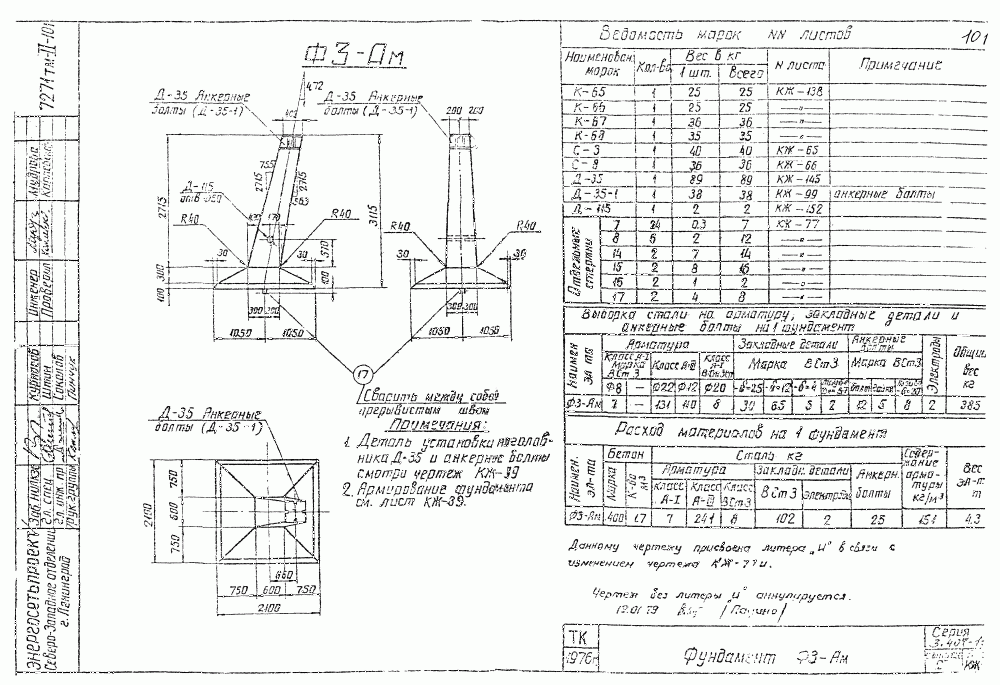 Ф3-Ам
Д-35 Анкерные
болты (Д-35-1)
Д-35 Анкерные
болты (Д-35-1)
472
200 200
2715
2715
755
2715
563
3115
Д-115
R40
R40
R40
R40
170
510
30
30
30
30
300
100
300 300
300 300
1050 1050
1050 1050
17
Сварить между собой
прерывистым швом
Примечания:
1. Деталь установки оголов-
ника Д-35 и анкерные болты
смотри чертеж КЖ-99
2. Армирование фундамента
см. лист КЖ-39.
Д-35 Анкерные
болты (Д-35-1)
750
600
750
2100
650
750 600 750
2100
7271тм-II-101
Инженер
Проверил
Куртасов
Шитин
Соколов
Зав. нилкэс
Гл. спец.
Гл. инж. пр.
Рук. группы
Энергосетьпроект
Северо-Западное отделение
г. Ленинград
Ведомость марок NN листов 101
Наименован. марок Кол-во Вес в кг 1 шт. Всего N листа Примечание
К-65 1 25 25 КЖ-138
К-66 1 25 25 —„—
К-67 1 36 36 —„—
К-68 1 35 35 —„—
С-3 1 40 40 КЖ-65
С-8 1 36 36 КЖ-66
Д-35 1 89 89 КЖ-145
Д-35-1 1 38 38 КЖ-99 анкерные болты
Д-115 1 2 2 КЖ-152
Отдельные стержни
7 24 0.3 7 КЖ-77
8 6 2 12 —„—
14 2 7 14 —„—
15 2 8 16 —„—
16 2 1 2 —„—
17 2 4 8 —„—
Выборка стали на арматуру, закладные детали и
анкерные болты на 1 фундамент
Наимен эл-та Арматура Закладные детали Анкерные болты Электроды Общий вес кг
Класс А-I Марка ВСт3 Класс А-II Класс А-I Марка ВСт3 Марка ВСт3
Ф8 — Ф22 Ф12 Ф20 -δ-25 -δ-12 -δ-4
Ф3-Ам 7 — 131 110 6 30 65 5 2 12 5 8 2 385
Расход материалов на 1 фундамент
Наимен. эл-та Бетон Сталь кг Содер-жание арма-туры кг/м³ Вес эл-та т
Марка К-во м³ Арматура Закладн. детали Анкерн. болты
Класс А-I Класс А-II Класс ВСт3 ВСт3 Электроды
Ф3-Ам 400 1.7 7 241 6 102 2 25 151 4.3
Данному чертежу присвоена литера „И" в связи с
изменением чертежа КЖ-77и.
Чертеж без литеры „И" аннулируется.
12.01.79
ТК
1976г
Фундамент Ф3-Ам
Серия
3.407-1
КЖ